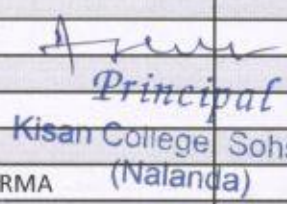 Principal
Kisan College, Sohs
(Nalanda)
RMA